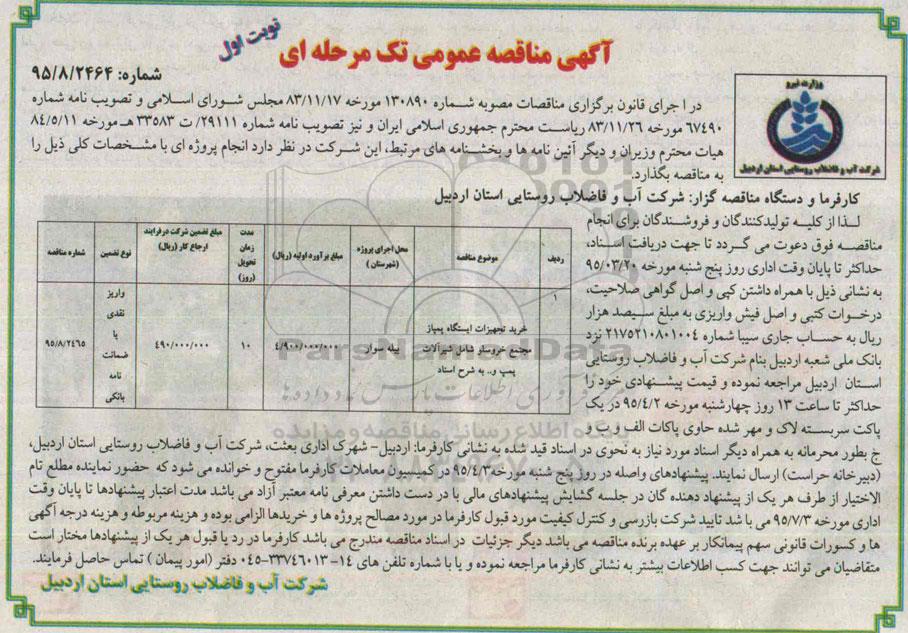 آگهی مناقصه عمومی تک مرحله ای
نوبت اول
شماره: ۹۵/۸/۲۴۶۴
وزارت نیرو
شرکت آب و فاضلاب روستایی استان اردبیل
در اجرای قانون برگزاری مناقصات مصوبه شماره ۱۳۰۸۹۰ مورخه ۸۳/۱۱/۱۷ مجلس شورای اسلامی و تصویب نامه شماره
۶۷۴۹۰ مورخه ۸۳/۱۱/۲۶ ریاست محترم جمهوری اسلامی ایران و نیز تصویب نامه شماره ۲۹۱۱۱/ ت ۳۳۵۸۳ هـ مورخه ۸۴/۵/۱۱
هیات محترم وزیران و دیگر آئین نامه ها و بخشنامه های مرتبط، این شرکت در نظر دارد انجام پروژه ای با مشخصات کلی ذیل را
به مناقصه بگذارد.
کارفرما و دستگاه مناقصه گزار: شرکت آب و فاضلاب روستایی استان اردبیل
لذا از کلیه تولیدکنندگان و فروشندگان برای انجام
مناقصه فوق دعوت می گردد تا جهت دریافت اسناد،
حداکثر تا پایان وقت اداری روز پنج شنبه مورخه ۹۵/۰۳/۲۰
به نشانی ذیل با همراه داشتن کپی و اصل گواهی صلاحیت،
درخواست کتبی و اصل فیش واریزی به مبلغ سیصد هزار
ریال به حساب جاری سیبا شماره ۲۱۷۵۲۱۰۸۰۱۰۰۴ نزد
بانک ملی شعبه اردبیل بنام شرکت آب و فاضلاب روستایی
استان اردبیل مراجعه نموده و قیمت پیشنهادی خود را
حداکثر تا ساعت ۱۳ روز چهارشنبه مورخه ۹۵/۴/۲ در یک
پاکت سربسته لاک و مهر شده حاوی پاکات الف و ب و
ردیف
موضوع مناقصه
محل اجرای پروژه (شهرستان)
مبلغ برآورد اولیه (ریال)
مدت زمان تحویل (روز)
مبلغ تضمین شرکت در فرایند ارجاع کار (ریال)
نوع تضمین
شماره مناقصه
۱
خرید تجهیزات ایستگاه پمپاژ
مجتمع خروسلو شامل شیرآلات
پمپ و.. به شرح اسناد
بیله سوار
۴/۹۰۰/۰۰۰/۰۰۰
۱۰
۴۹۰/۰۰۰/۰۰۰
واریز
نقدی
یا
ضمانت
نامه
بانکی
۹۵/۸/۲۴۶۵
ج بطور محرمانه به همراه دیگر اسناد مورد نیاز به نحوی در اسناد قید شده به نشانی کارفرما: اردبیل- شهرک اداری بعثت، شرکت آب و فاضلاب روستایی استان اردبیل،
(دبیرخانه حراست) ارسال نمایند. پیشنهادهای واصله در روز پنج شنبه مورخه ۹۵/۴/۳ در کمیسیون معاملات کارفرما مفتوح و خوانده می شود که حضور نماینده مطلع تام
الاختیار از طرف هر یک از پیشنهاد دهنده گان در جلسه گشایش پیشنهادهای مالی با در دست داشتن معرفی نامه معتبر آزاد می باشد مدت اعتبار پیشنهادها تا پایان وقت
اداری مورخه ۹۵/۷/۳ می باشد تایید شرکت بازرسی و کنترل کیفیت مورد قبول کارفرما در مورد مصالح پروژه ها و خریدها الزامی بوده و هزینه مربوطه و هزینه درجه آگهی
ها و کسورات قانونی سهم پیمانکار بر عهده برنده مناقصه می باشد دیگر جزئیات در اسناد مناقصه مندرج می باشد کارفرما در رد یا قبول هر یک از پیشنهادها مختار است
متقاضیان می توانند جهت کسب اطلاعات بیشتر به نشانی کارفرما مراجعه نموده و یا با شماره تلفن های ۱۴-۳۳۷۴۶۰۱۳-۰۴۵ دفتر (امور پیمان) تماس حاصل فرمایند.
شرکت آب و فاضلاب روستایی استان اردبیل
ParsNamadData
پایگاه اطلاع رسانی مناقصه و مزایده